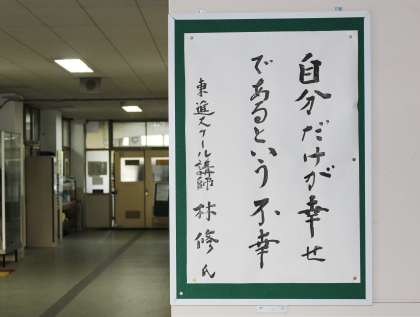 自分だけが幸せ
であるという不幸
東進スクール講師 林修氏